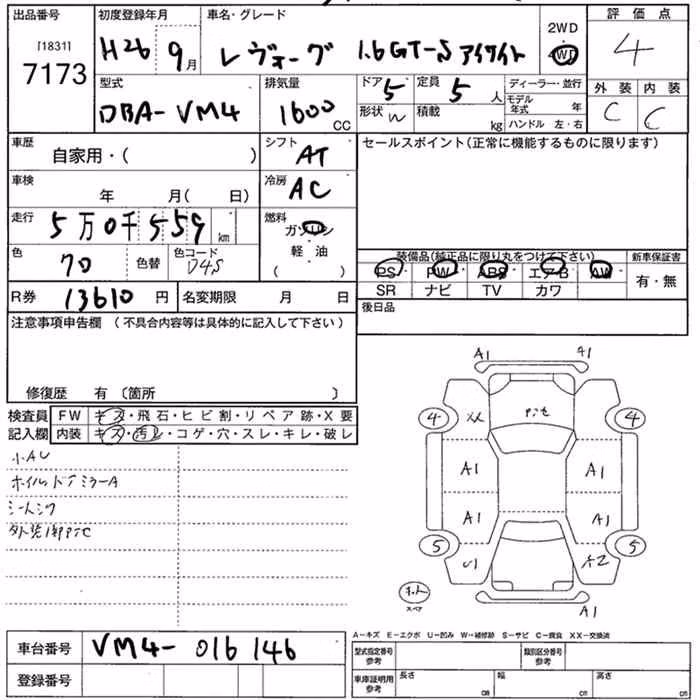 出品番号 初度登録年月 車名・グレード 2WD 評価点
[1831] 7173 H26 9月 レヴォーグ 1.6GT-S アイサイト 4WD 4
型式 排気量 ドア 5 定員 5人 ディーラー・並行 外装 内装
DBA-VM4 1600 CC 形状 W 積載 kg モデル年式 年 C C
ハンドル 左・右
車歴 自家用・( ) シフト AT セールスポイント(正常に機能するものに限ります)
車検 年 月( 日) 冷房 AC
走行 5万0千559 km 燃料 ガソリン
軽・油
( )
色 色替 色コード D4S 装備品(純正品に限り丸をつけて下さい) 新車保証書
PS PW ABS エアB AW 有・無
SR ナビ TV カワ
R券 13610円 名変期限 月 日 後日品
注意事項申告欄 (不具合内容等は具体的に記入して下さい)
修復歴 有 〔箇所 〕
検査員 FW キズ・飛石・ヒビ割・リペア跡・X要
記入欄 内装 キズ・汚レ・コゲ・穴・スレ・キレ・破レ
小AU
ホイルドアミラーA
外装1部PテC
A1 A1
4 XX Pテc 4
A1 A1
A1 A1
5 U1 A2 5
A1
A-キズ E-エクボ U-凹み W-補修跡 S-サビ C-腐食 XX-交換済
車台番号 VM4-016146
登録番号
型式指定番号 参考 類別区分番号 参考
車庫証明用 参考 長さ cm 幅 cm 高さ cm